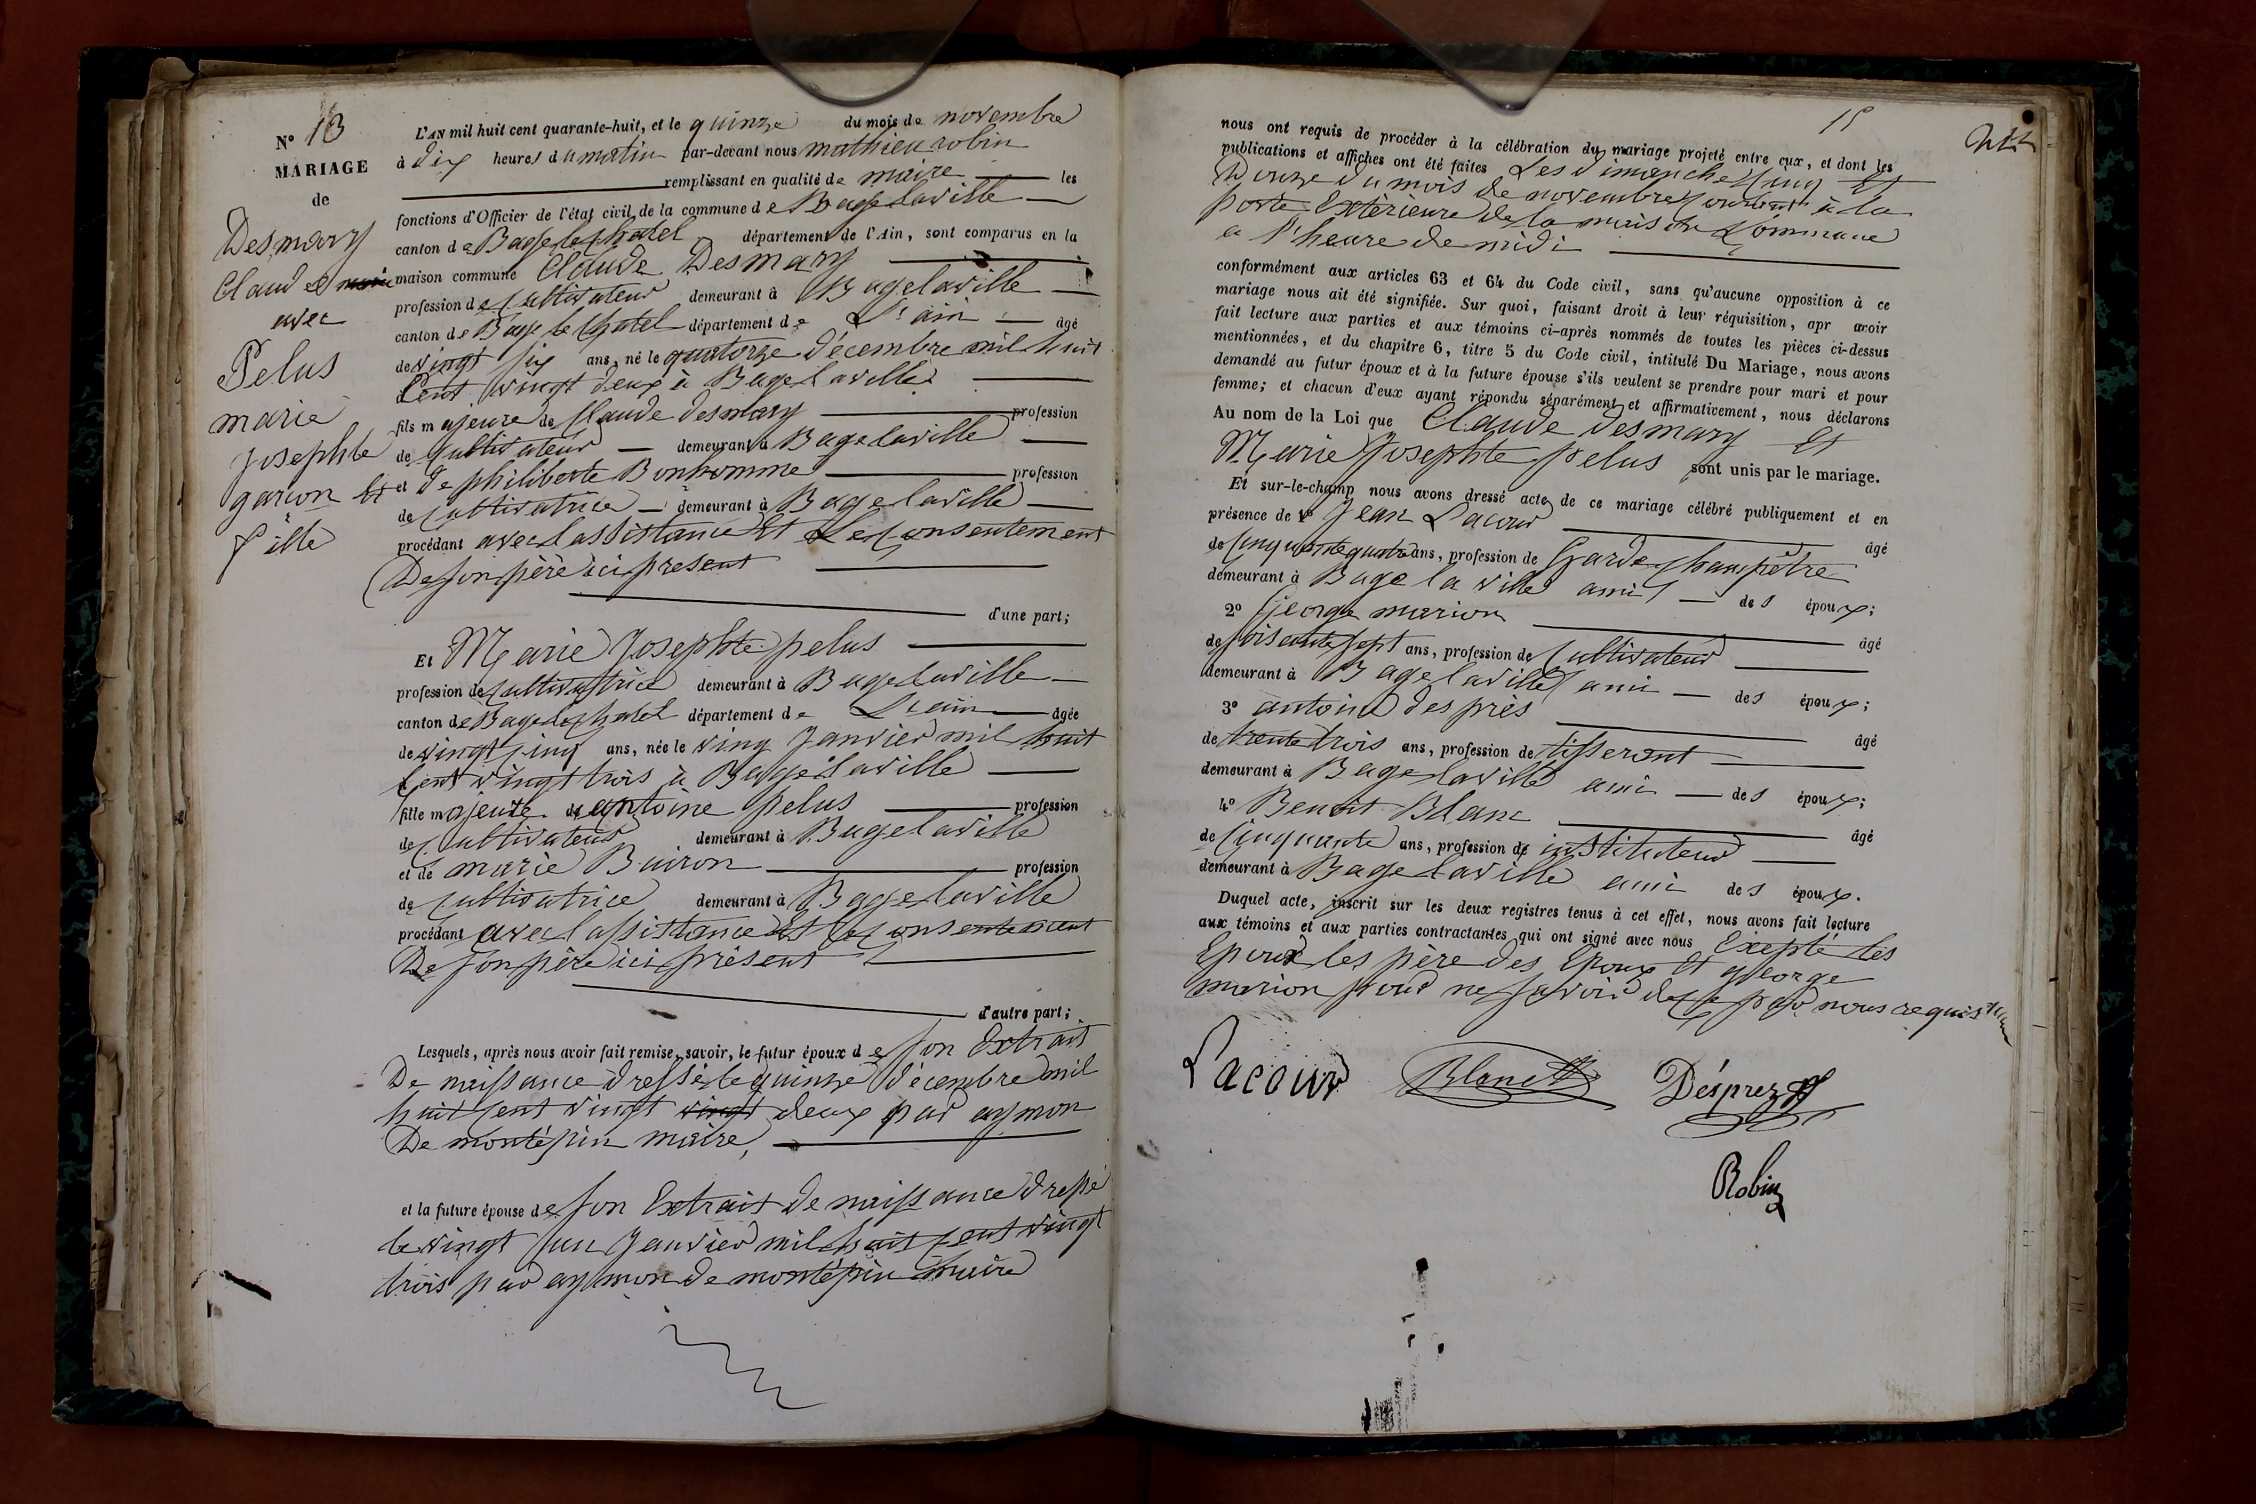 N° 13
MARIAGE
de
Desmary
Claude
avec
Pelus
marie
Josephte
garçon Et
fille
L'AN mil huit cent quarante-huit, et le quinze du mois de novembre
à dix heures du matin par-devant nous mathieu robin
remplissant en qualité de maire les
fonctions d'Officier de l'état civil de la commune de Bagelaville
canton de Bage le chatel département de l'Ain, sont comparus en la
maison commune Claude Desmary
profession de Cultivateur demeurant à Bagelaville
canton de Bage le Chatel département de L'ain âgé
de vingt six ans, né le quatorze décembre mil huit
Cent vingt deux à Bagelaville
fils majeure de Claude desmary profession
de Cultivateur demeurant à Bagelaville
et de philiberte Bonhomme profession
de Cultivatrice demeurant à Bagelaville
procédant avec lassistance Et le Consentement
De son père ici present
d'une part;
Et Marie Josephte pelus
profession de Cultivatrice demeurant à Bagelaville
canton de Bage le chatel département de L'ain âgée
de vingt cinq ans, née le ving Janvier mil huit
Cent vingt trois à Bagelaville
fille majeure de antoine pelus profession
de Cultivateur demeurant à Bagelaville
et de marie Buiron profession
de Cultivatrice demeurant à Bagelaville
procédant avec lassistance Et le Consentement
De son père ici présent
d'autre part;
Lesquels, après nous avoir fait remise, savoir, le futur époux de son Extrait
De naissance dressé le quinze décembre mil
huit Cent vingt vingt deux par aymon
De montépin maire,
et la future épouse de son Extrait de naissance dressé
le vingt un Janvier mil huit Cent vingt
trois par aymon de montépin maire
15
nous ont requis de procéder à la célébration du mariage projeté entre eux, et dont les
publications et affiches ont été faites Les dimenches Cinq Et
Douze du mois de novembre Courant à la
porte Extérieure de la maison Commune
a l'heure de midi
conformément aux articles 63 et 64 du Code civil, sans qu'aucune opposition à ce
mariage nous ait été signifiée. Sur quoi, faisant droit à leur réquisition, apr avoir
fait lecture aux parties et aux témoins ci-après nommés de toutes les pièces ci-dessus
mentionnées, et du chapitre 6, titre 5 du Code civil, intitulé Du Mariage, nous avons
demandé au futur époux et à la future épouse s'ils veulent se prendre pour mari et pour
femme; et chacun d'eux ayant répondu séparément et affirmativement, nous déclarons
Au nom de la Loi que Claude desmary Et
Marie Josephte pelus sont unis par le mariage.
Et sur-le-champ nous avons dressé acte de ce mariage célébré publiquement et en
présence de 1° Jean Lacour âgé
de Cinquante quatre ans, profession de Garde Champêtre
demeurant à Bage la ville ami des époux;
2° George marion âgé
de soisante sept ans, profession de Cultivateur
demeurant à Bagelaville ami des époux;
3° antoine des près âgé
de trente trois ans, profession de tisserant
demeurant à Bagelaville ami des époux;
4° Benoit Blanc âgé
de Cinquante ans, profession de instituteur
demeurant à Bagelaville ami des époux.
Duquel acte, inscrit sur les deux registres tenus à cet effet, nous avons fait lecture
aux témoins et aux parties contractantes qui ont signé avec nous Excepté les
Epoux les père des Epoux Et george
marion pour ne savoir de ce par nous requis
Lacour Blanc Désprez
Robin